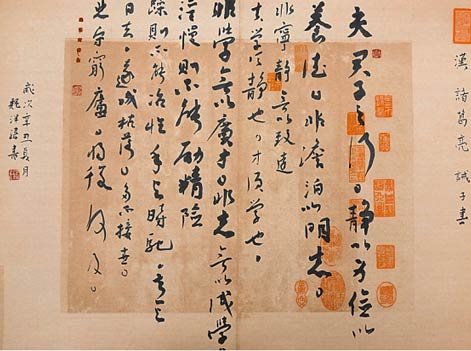 漢 諸葛亮 誡子書
夫君子之行靜以儉以
養德非澹泊以明志
非寧靜無以致遠
夫學須靜也才須學也
非學無以廣才非志無以成學
淫慢則不能勵精險
躁則不能冶性年與時馳意與
日去遂成枯落多不接世
悲守窮廬將復何及
歲次辛丑夏月